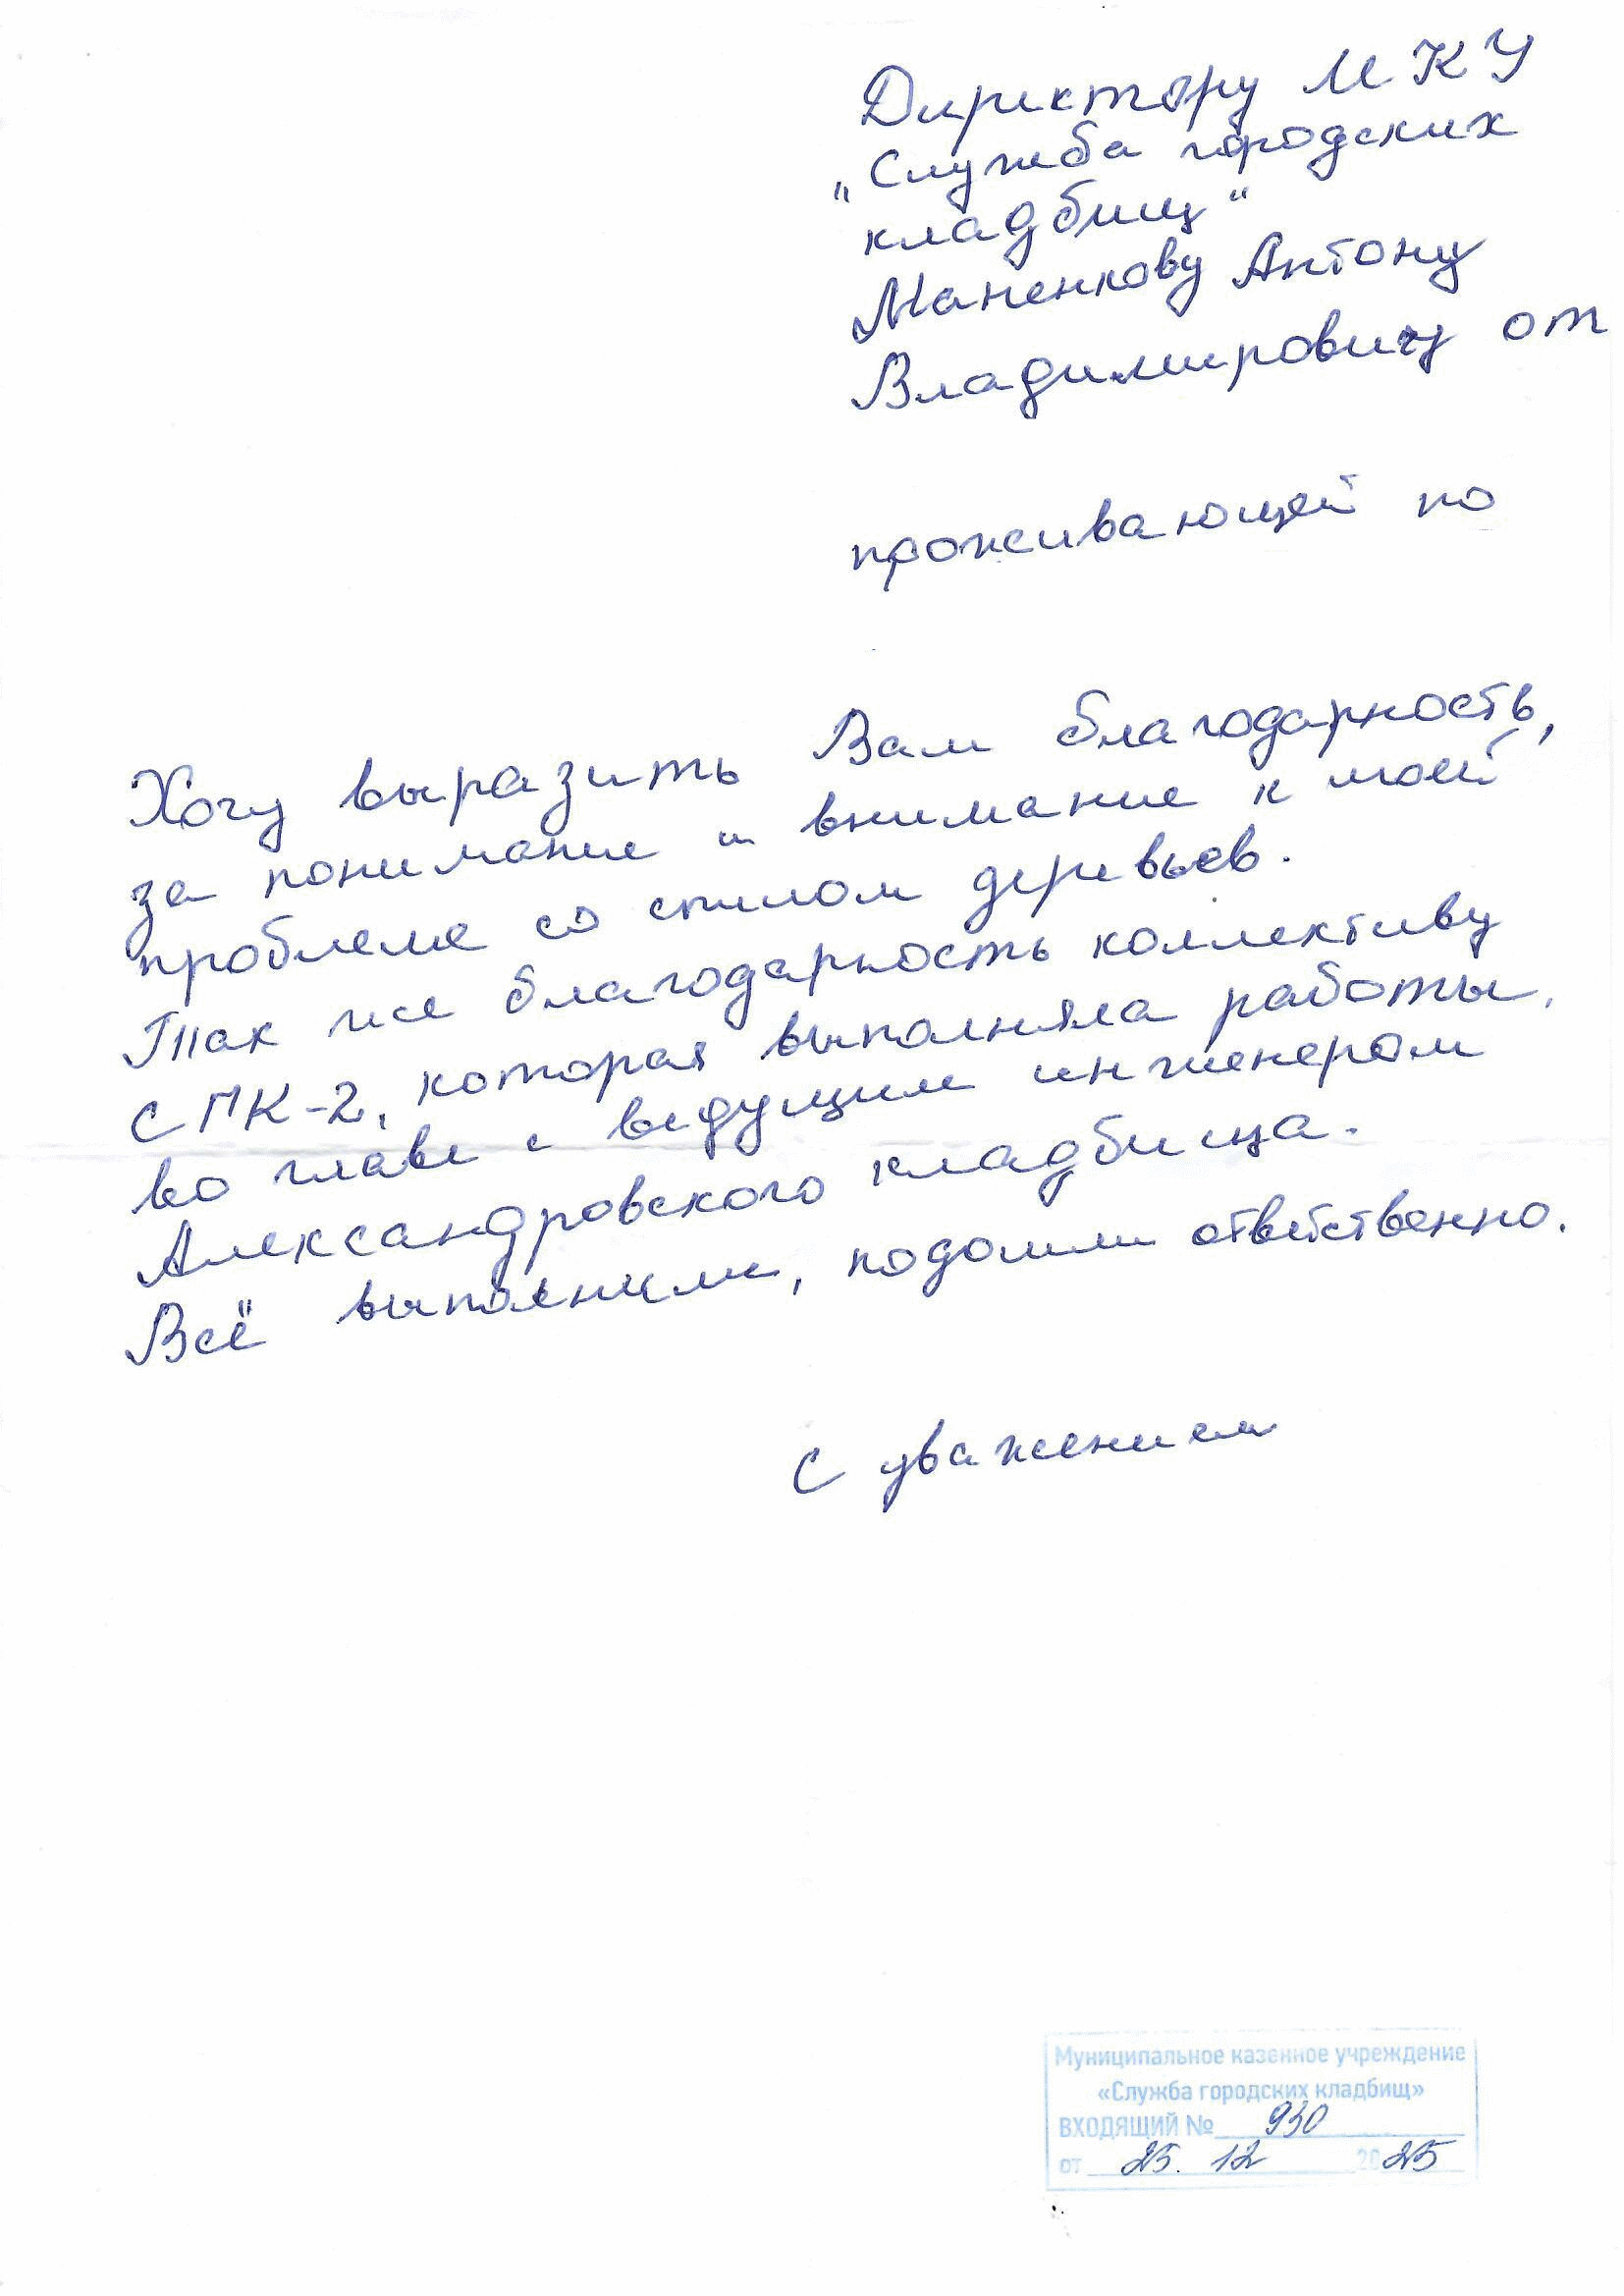 Директору МКУ
„Служба городских
кладбищ“
Маненкову Антону
Владимировичу от
проживающей по
Хочу выразить Вам благодарность,
за понимание и внимание к моей
проблеме со спилом деревьев.
Так же благодарность коллективу
СПК-2, которая выполняла работы,
во главе с ведущим инженером
Александровского кладбища.
Всё выполнили, подошли ответственно.
С уважением
Муниципальное казенное учреждение
«Служба городских кладбищ»
ВХОДЯЩИЙ № 930
от 25. 12 2025